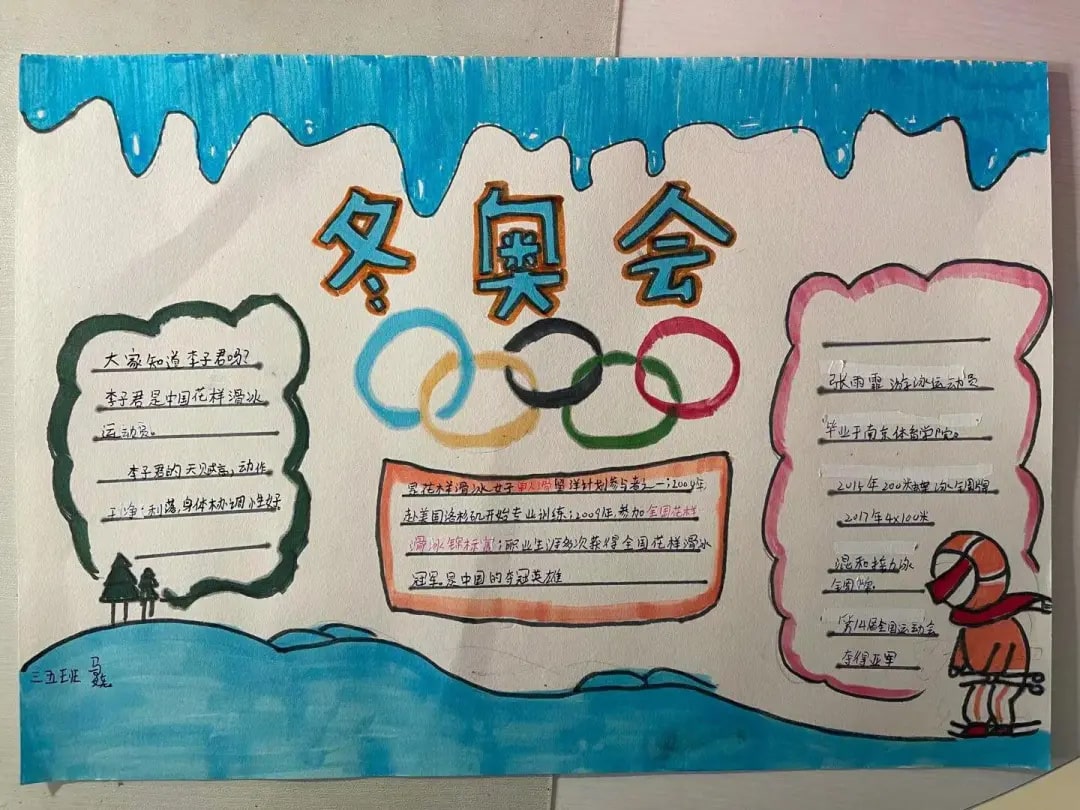 冬奥会
大家知道李子君吗?
李子君是中国花样滑冰
运动员。
李子君的天赋高,动作
干净利落,身体协调性好
花样滑冰女子单人滑
留洋计划参与者之一;2009年
赴美国洛杉矶开始专业训练;2009年,参加全国花样
滑冰锦标赛;职业生涯多次获得全国花样滑冰
冠军是中国的夺冠英雄
张雨霏游泳运动员
毕业于南京体育学院。
2015年200米蝶泳金牌
2017年4×100米
混和接力泳
金牌
第14届全国运动会
夺得亚军
三五班